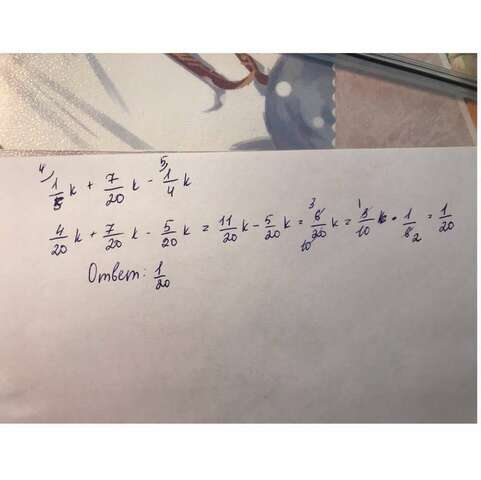 4) 1/5 k + 7/20 k - 5) 1/4 k
4/20 k + 7/20 k - 5/20 k = 11/20 k - 5/20 k = 3 6/20 10 k = 1 3/10 k · 1/6 2 = 1/20
Ответ: 1/20